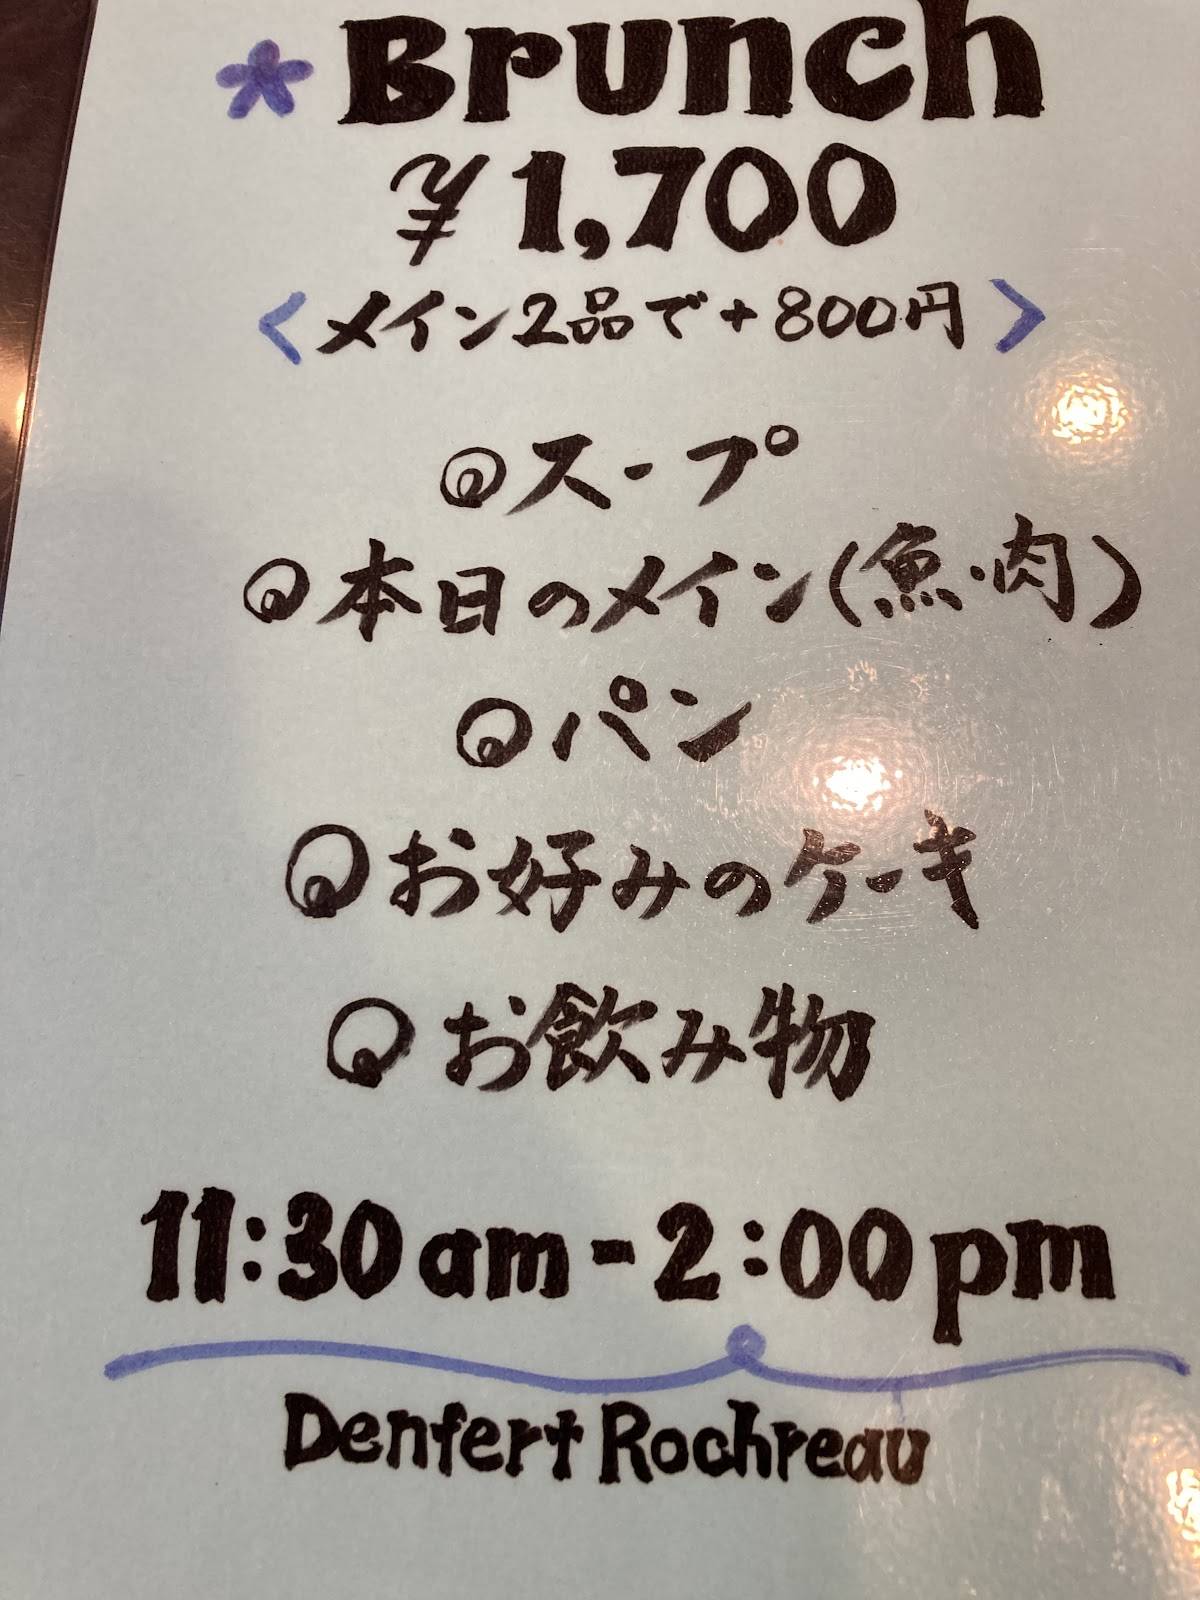 Brunch
¥1,700
<メイン2品で+800円>
スープ
本日のメイン(魚・肉)
パン
お好みのケーキ
お飲み物
11:30am-2:00pm
Denfert Rochreau